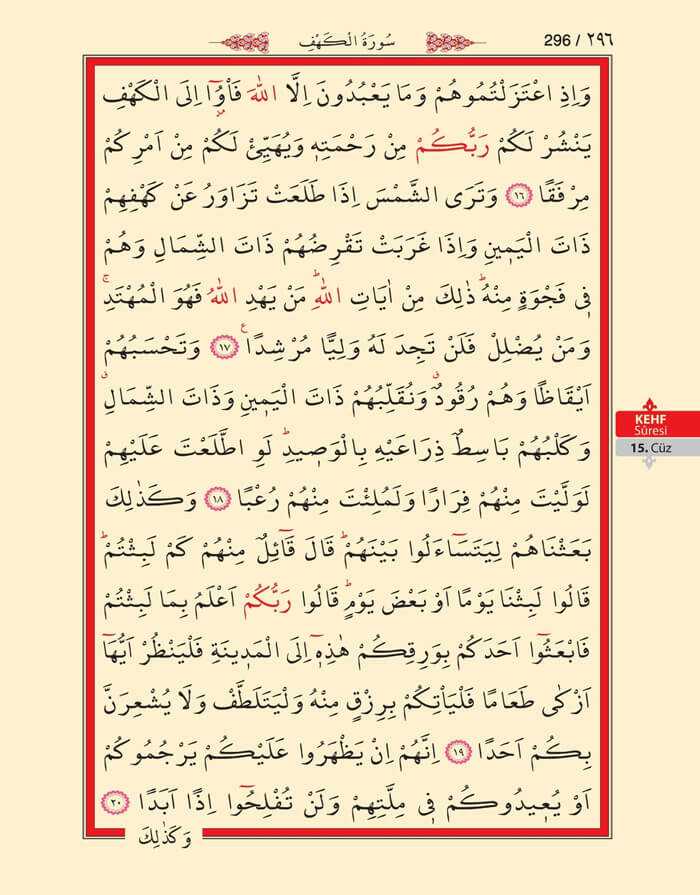 296 / ٢٩٦
سُورَةُ الْكَهْفِ
وَاِذِ اعْتَزَلْتُمُوهُمْ وَمَا يَعْبُدُونَ اِلَّا اللّٰهَ فَأْوُٓ۫ا اِلَى الْكَهْفِ
يَنْشُرْ لَكُمْ رَبُّكُمْ مِنْ رَحْمَتِه۪ وَيُهَيِّئْ لَكُمْ مِنْ اَمْرِكُمْ
مِرْفَقًا ﴿١٦﴾ وَتَرَى الشَّمْسَ اِذَا طَلَعَتْ تَزَاوَرُ عَنْ كَهْفِهِمْ
ذَاتَ الْيَم۪ينِ وَاِذَا غَرَبَتْ تَقْرِضُهُمْ ذَاتَ الشِّمَالِ وَهُمْ
ف۪ي فَجْوَةٍ مِنْهُۜ ذٰلِكَ مِنْ اٰيَاتِ اللّٰهِۜ مَنْ يَهْدِ اللّٰهُ فَهُوَ الْمُهْتَدِۚ
وَمَنْ يُضْلِلْ فَلَنْ تَجِدَ لَهُ وَلِيًّا مُرْشِدًا۟ ﴿١٧﴾ وَتَحْسَبُهُمْ
اَيْقَاظًا وَهُمْ رُقُودٌۗ وَنُقَلِّبُهُمْ ذَاتَ الْيَم۪ينِ وَذَاتَ الشِّمَالِۗ
وَكَلْبُهُمْ بَاسِطٌ ذِرَاعَيْهِ بِالْوَص۪يدِۜ لَوِ اطَّلَعْتَ عَلَيْهِمْ
لَوَلَّيْتَ مِنْهُمْ فِرَارًا وَلَمُلِئْتَ مِنْهُمْ رُعْبًا ﴿١٨﴾ وَكَذٰلِكَ
بَعَثْنَاهُمْ لِيَتَسَٓاءَلُوا بَيْنَهُمْۜ قَالَ قَٓائِلٌ مِنْهُمْ كَمْ لَبِثْتُمْۜ
قَالُوا لَبِثْنَا يَوْمًا اَوْ بَعْضَ يَوْمٍۜ قَالُوا رَبُّكُمْ اَعْلَمُ بِمَا لَبِثْتُمْ
فَابْعَثُٓوا اَحَدَكُمْ بِوَرِقِكُمْ هٰذِه۪ٓ اِلَى الْمَد۪ينَةِ فَلْيَنْظُرْ اَيُّهَٓا
اَزْكٰى طَعَامًا فَلْيَأْتِكُمْ بِرِزْقٍ مِنْهُ وَلْيَتَلَطَّفْ وَلَا يُشْعِرَنَّ
بِكُمْ اَحَدًا ﴿١٩﴾ اِنَّهُمْ اِنْ يَظْهَرُوا عَلَيْكُمْ يَرْجُمُوكُمْ
اَوْ يُع۪يدُوكُمْ ف۪ي مِلَّتِهِمْ وَلَنْ تُفْلِحُٓوا اِذًا اَبَدًا ﴿٢٠﴾
وَكَذٰلِكَ
KEHF
Sûresi
15. Cüz